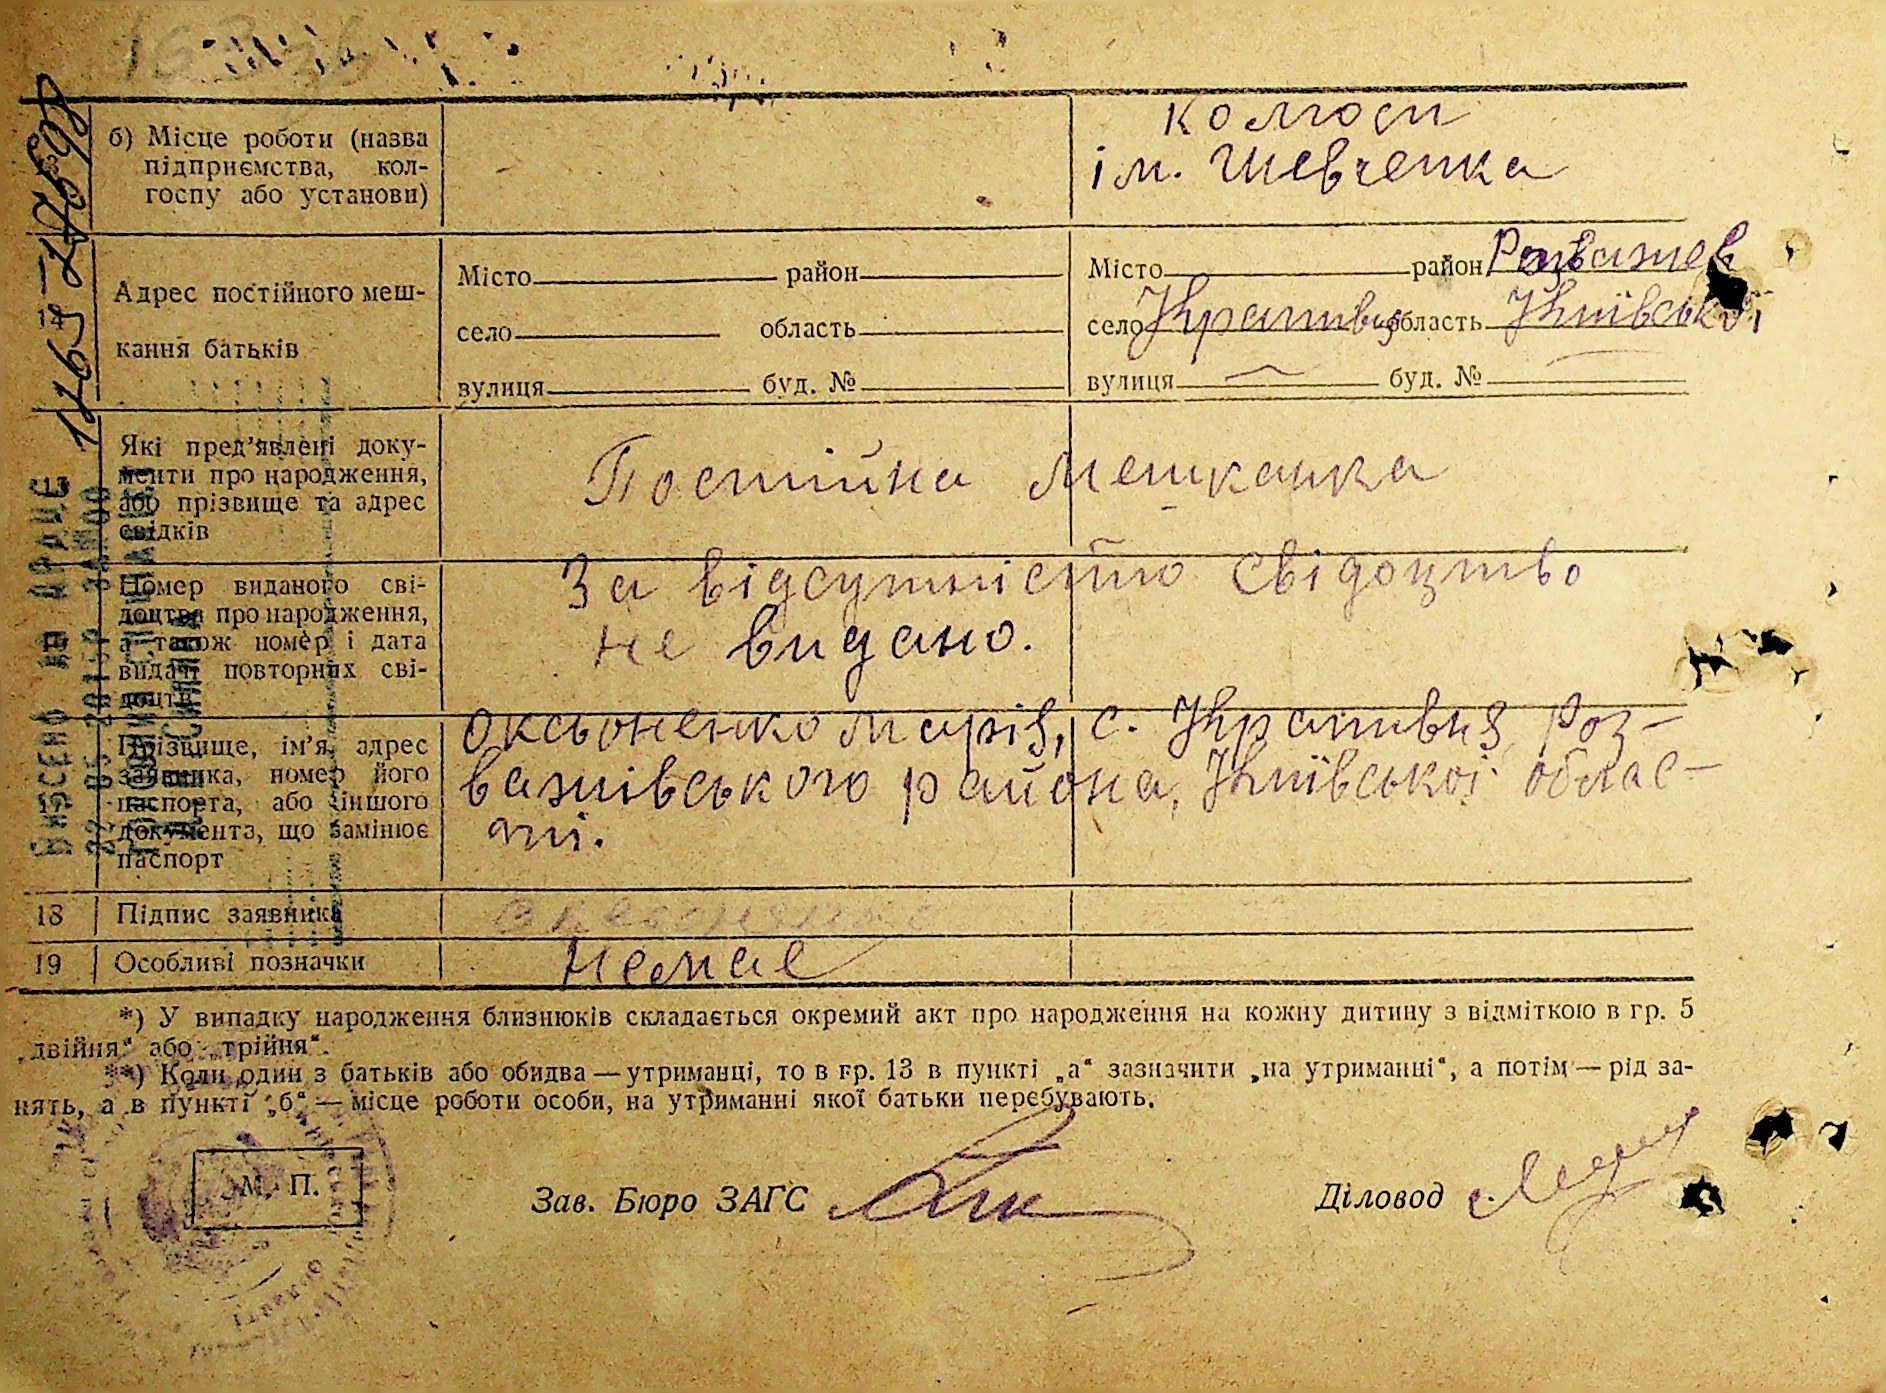 б) Місце роботи (назва
підприємства, кол-
госпу або установи)
колгосп
ім. Шевченка
14
Адрес постійного меш-
кання батьків
Місто район
село область
вулиця буд. №
Місто район Розважев
село Кративня область Київської
вулиця — буд. №
15
Які пред'явлені доку-
менти про народження,
або прізвище та адрес
свідків
Постійна мешканка
Номер виданого сві-
доцтва про народження,
а також номер і дата
видачі повторних сві-
доцтв
За відсутністю свідоцтво
не видано.
17
Прізвище, ім'я, адрес
заявника, номер його
паспорта, або іншого
документа, що замінює
паспорт
Оксьоненко Марія, с. Кративня Роз-
важівського района, Київської облас-
ті.
18 Підпис заявника
Оксьоненко
19 Особливі позначки
немає
*) У випадку народження близнюків складається окремий акт про народження на кожну дитину з відміткою в гр. 5
„двійня“ або „трійня“.
**) Коли один з батьків або обидва — утриманці, то в гр. 13 в пункті „а“ зазначити „на утриманні“, а потім — рід за-
нять, а в пункті „б“ — місце роботи особи, на утриманні якої батьки перебувають.
М. П.
Зав. Бюро ЗАГС
Діловод